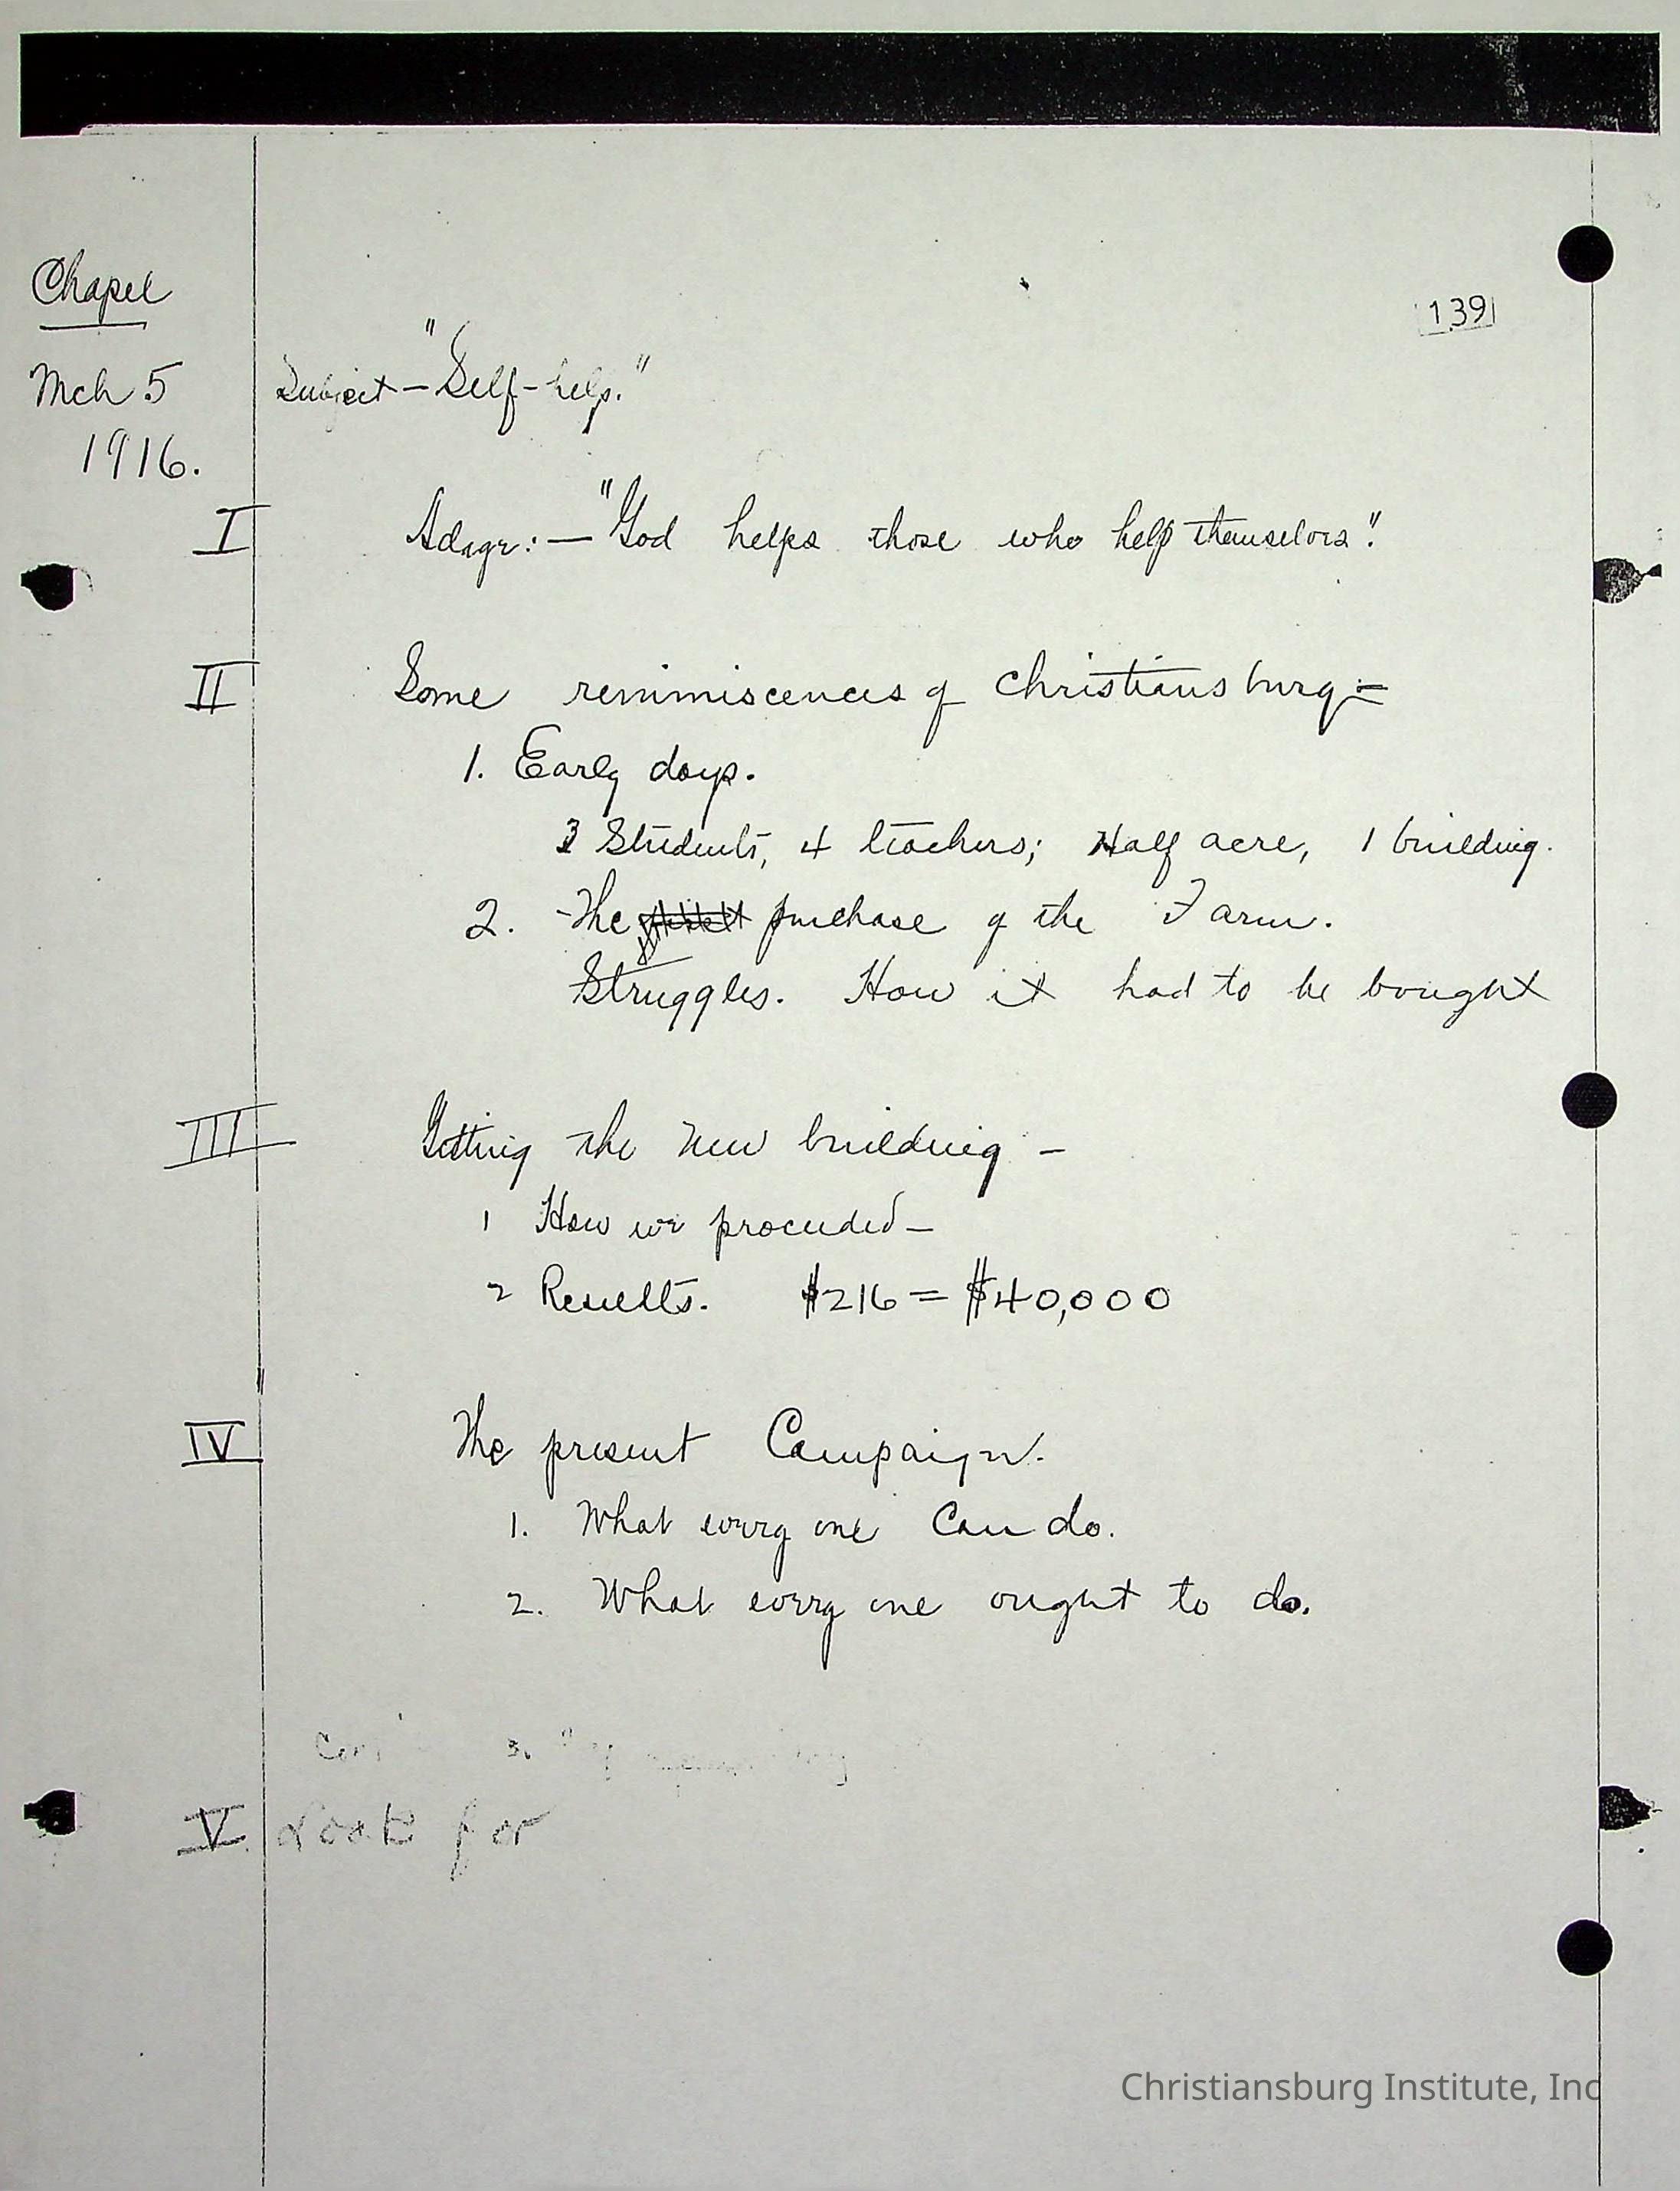 Chapel
139
Mch 5
1916.
Subject — "Self-help."
I Adage: — "God helps those who help themselves."
II Some reminiscences of Christiansburg =
1. Early days.
3 Students, 4 teachers; Half acre, 1 building.
2. The purchase of the Farm.
Struggles. How it had to be bought
III Getting the new building —
1 How we proceeded —
2 Results. $216 = $40,000
IV The present Campaign.
1. What every one can do.
2. What every one ought to do.
3.
V. Look for
Christiansburg Institute, Inc